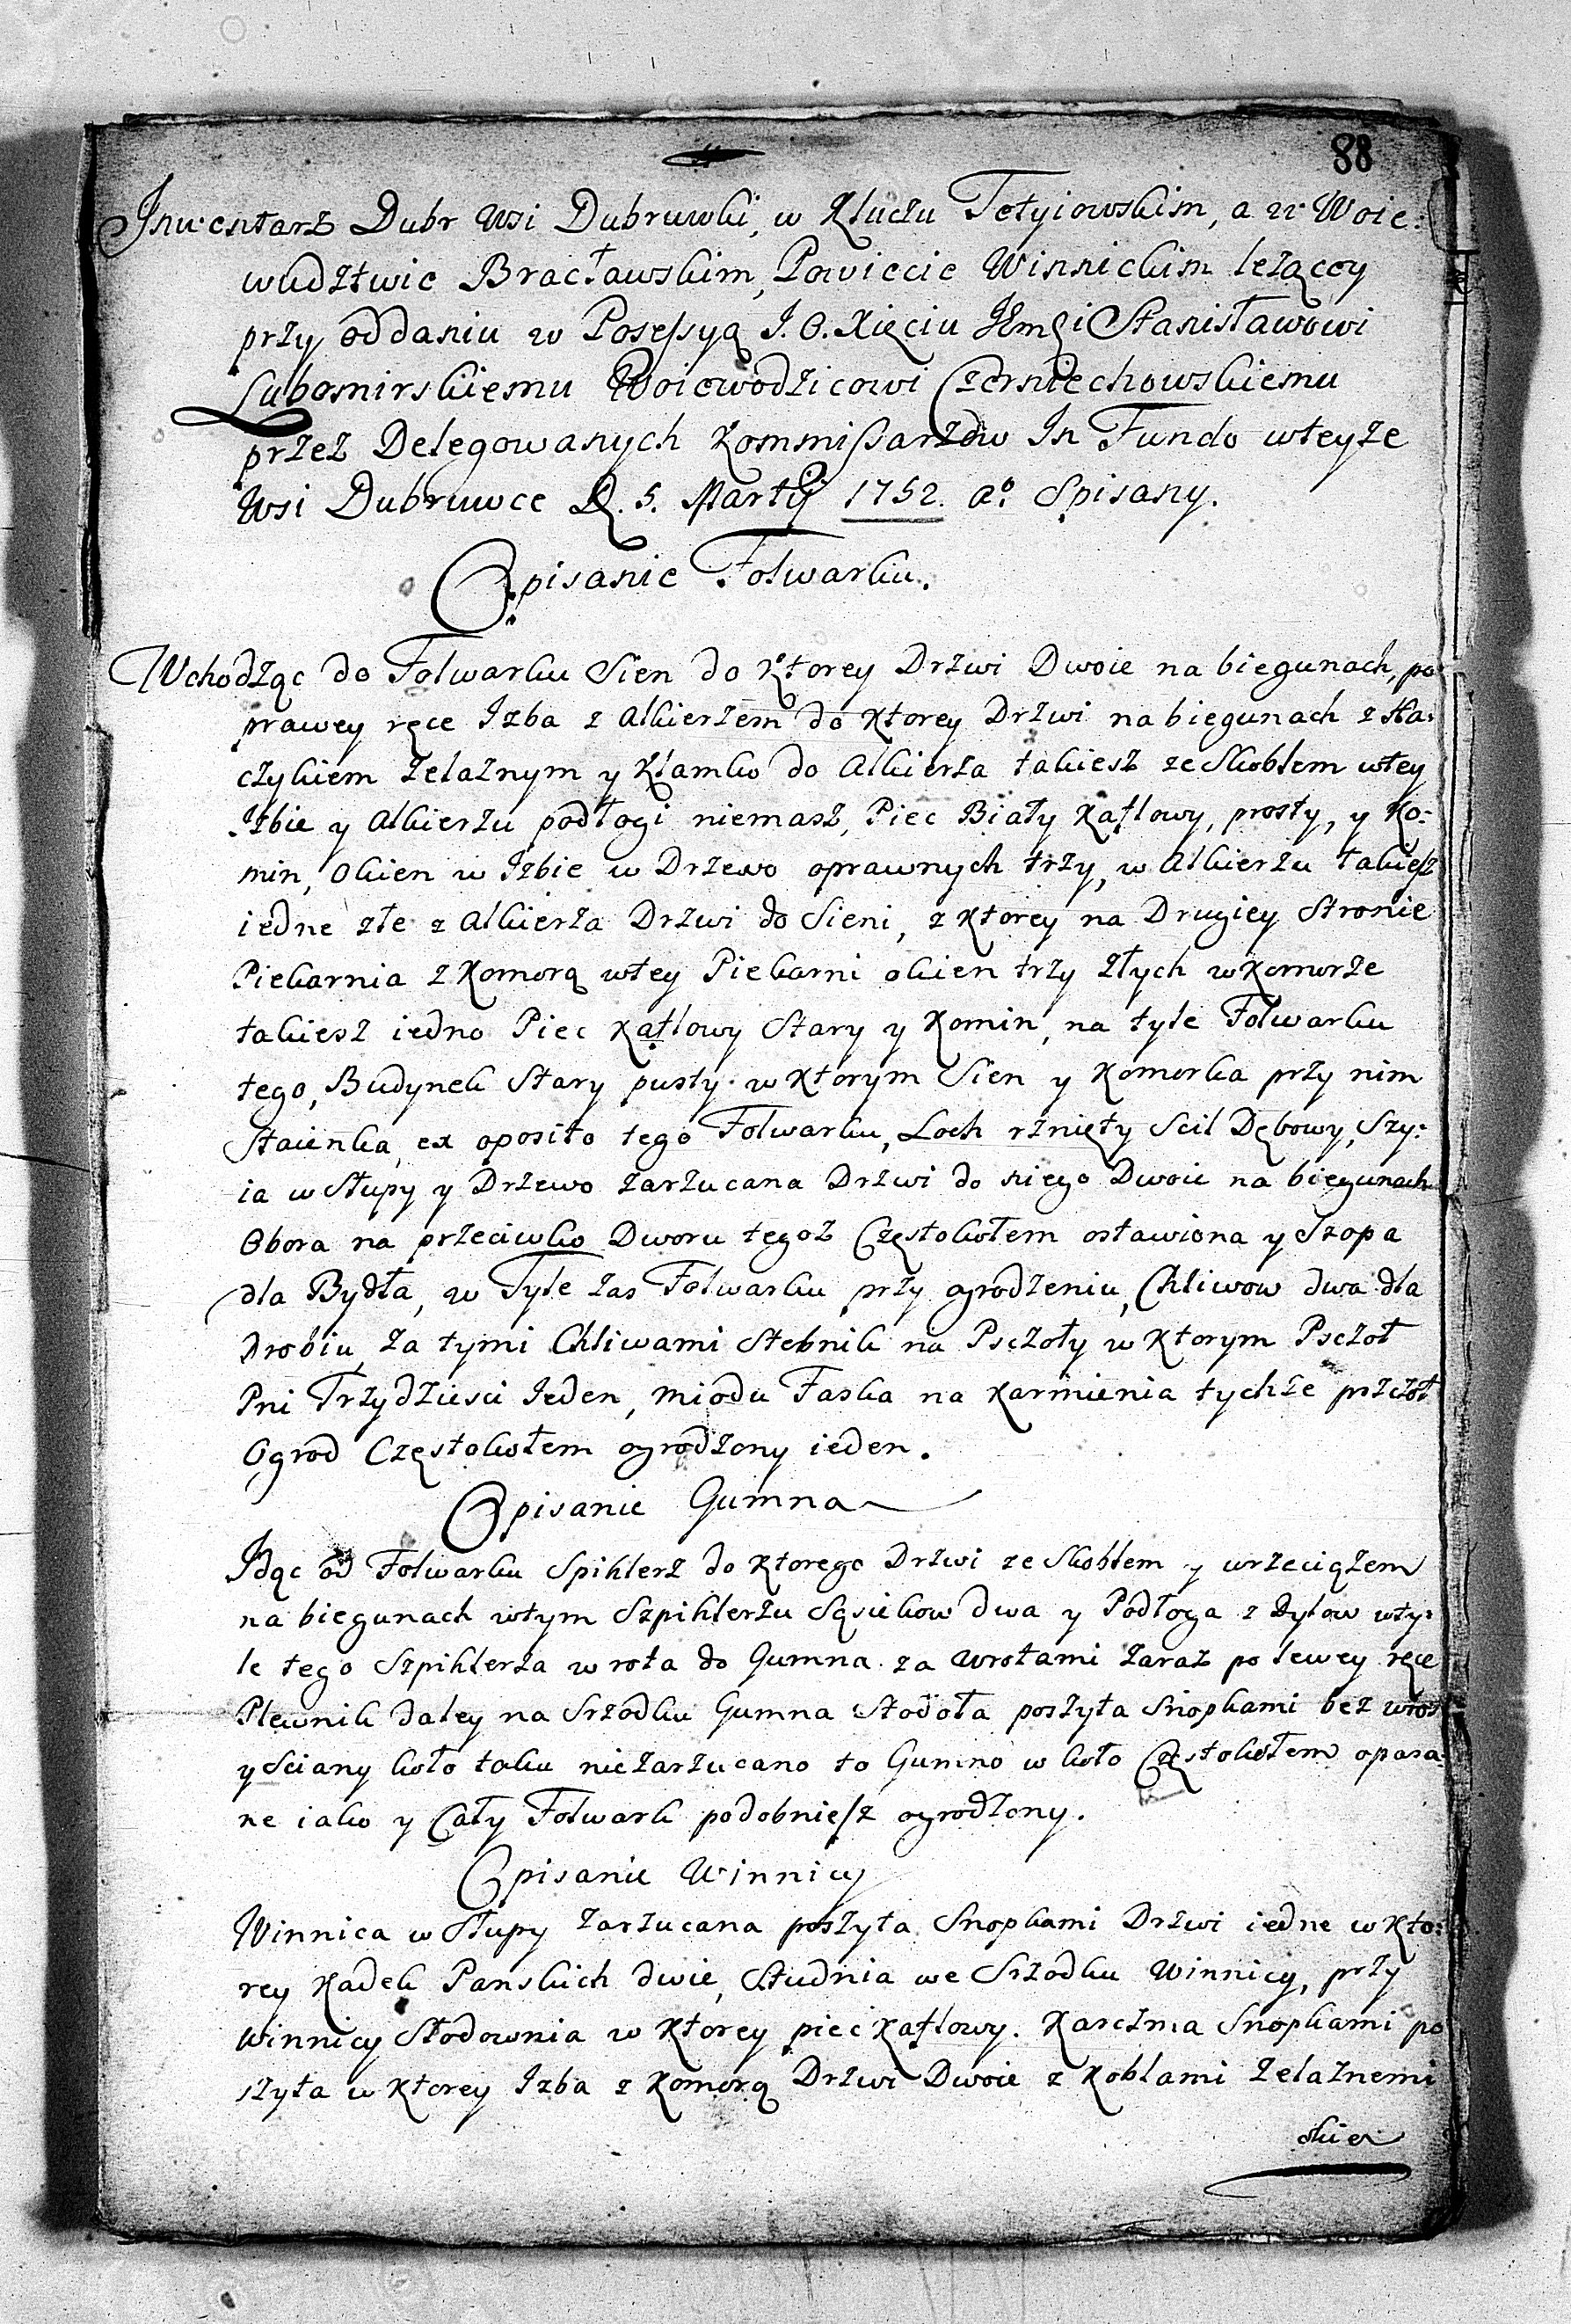 88
Inwentarz Dubr Wsi Dubruwki, w Kluczu Tetyiowskim, a w Woie:
wudztwie Bracławskim, Powiecie Winnickim lezącey
przy oddaniu w Posessyą J. O. Xięciu Jmci Stanisławowi
Lubomirskiemu Woiewodzicowi Czerniechowskiemu
przez Delegowanych Kommissarzow In Fundo wteyze
Wsi Dubruwce D. 5. Martij 1752. ao. Spisany.
Opisanie Folwarku.
Wchodząc do Folwarku Sien do Ktorey Drzwi Dwoie na biegunach, po
prawey ręce Izba z Alkierzem do Ktorey Drzwi na biegunach z Ha:
czykiem zelaznym y Klamko do Alkierza takiesz ze Skoblem wtey
Izbie y Alkierzu podłogi niemasz, Piec Biały Kaflowy, prosty, y Ko:
min, Okien w Izbie w Drzewo oprawnych trzy, w Alkierzu takiesz
iedne złe z Alkierza Drzwi do Sieni, z Ktorey na Drugiey Stronie
Piekarnia z Komorą wtey Piekarni okien trzy złych w Komorze
takiesz iedno Piec Kaflowy Stary y Komin, na tyle Folwarku
tego, Budynek Stary pusty w Ktorym Sien y Komorka przy nim
Staienka, ex oposito tego Folwarku, Loch rznięty Scil Dębowy, Szy:
ia w Słupy y Drzewo zarzucana Drzwi do niego Dwoie na biegunach
Obora na przeciwko Dworu tegoz Częstokołem ostawiona y Szopa
dla Bydła, w Tyle zas Folwarku przy ogrodzeniu, Chliwow dwa dla
Drobiu, za tymi Chliwami Stebnik na Pszczoły w Ktorym Pszczoł
Pni Trzydziesci Jeden, miodu Faska na Karmienia tychże pszczoł
Ogrod Częstokołem ogrodzony ieden.
Opisanie Gumna
Idąc od Folwarku Spihlerz do Ktorego Drzwi ze Skoblem y wrzeciązem
na biegunach wtym Szpihlerzu Sąsiekow dwa y Podłoga z Dylow wty:
le tego Szpihlerza wrota do Gumna za wrotami zaraz po lewey ręce
Plewnik daley na Srzodku Gumna Stodoła poszyta Snopkami bez wrot
y Sciany koło toku niezarzucano to Gumno w koło Częstokołem opasa:
ne iako y Cały Folwark podobniesz ogrodzony.
Opisanie Winnicy
Winnica w Słupy zarzucana poszyta Snopkami Drzwi iedne w Kto:
rey Kadek Panskich dwie, Studnia we Srzodku Winnicy, przy
Winnicy Słodownia w Ktorey piec Kaflowy. Karczma Snopkami po
szyta w Ktorey Izba z Komorą Drzwi Dwoie z Koblami Zelaznemi